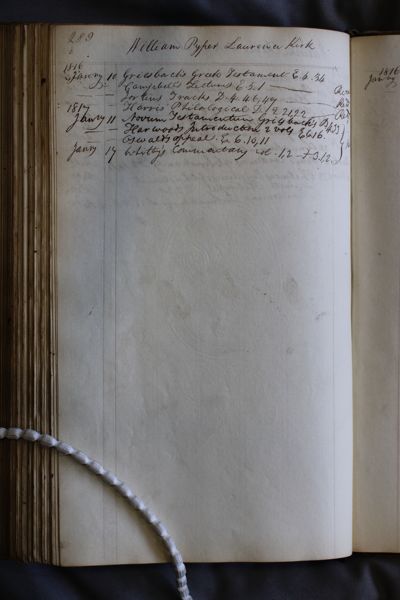 289
William Pyper Laurence Kirk
1816
Janry 10 Griesbachs Greek Testament E.4.34
Campbells Lectures E.3.1
Jortins Tracts D.4.46,47
1817 Harris Philological I.8.21,22
Janry 11 Novum Testamentum Griesbachs
Harwoods Introduction 2 vols E.6.16
Oswalds appeal E.6.10,11
Janry 17 Whitbys Commentary vol. 1,2
1816
Janry